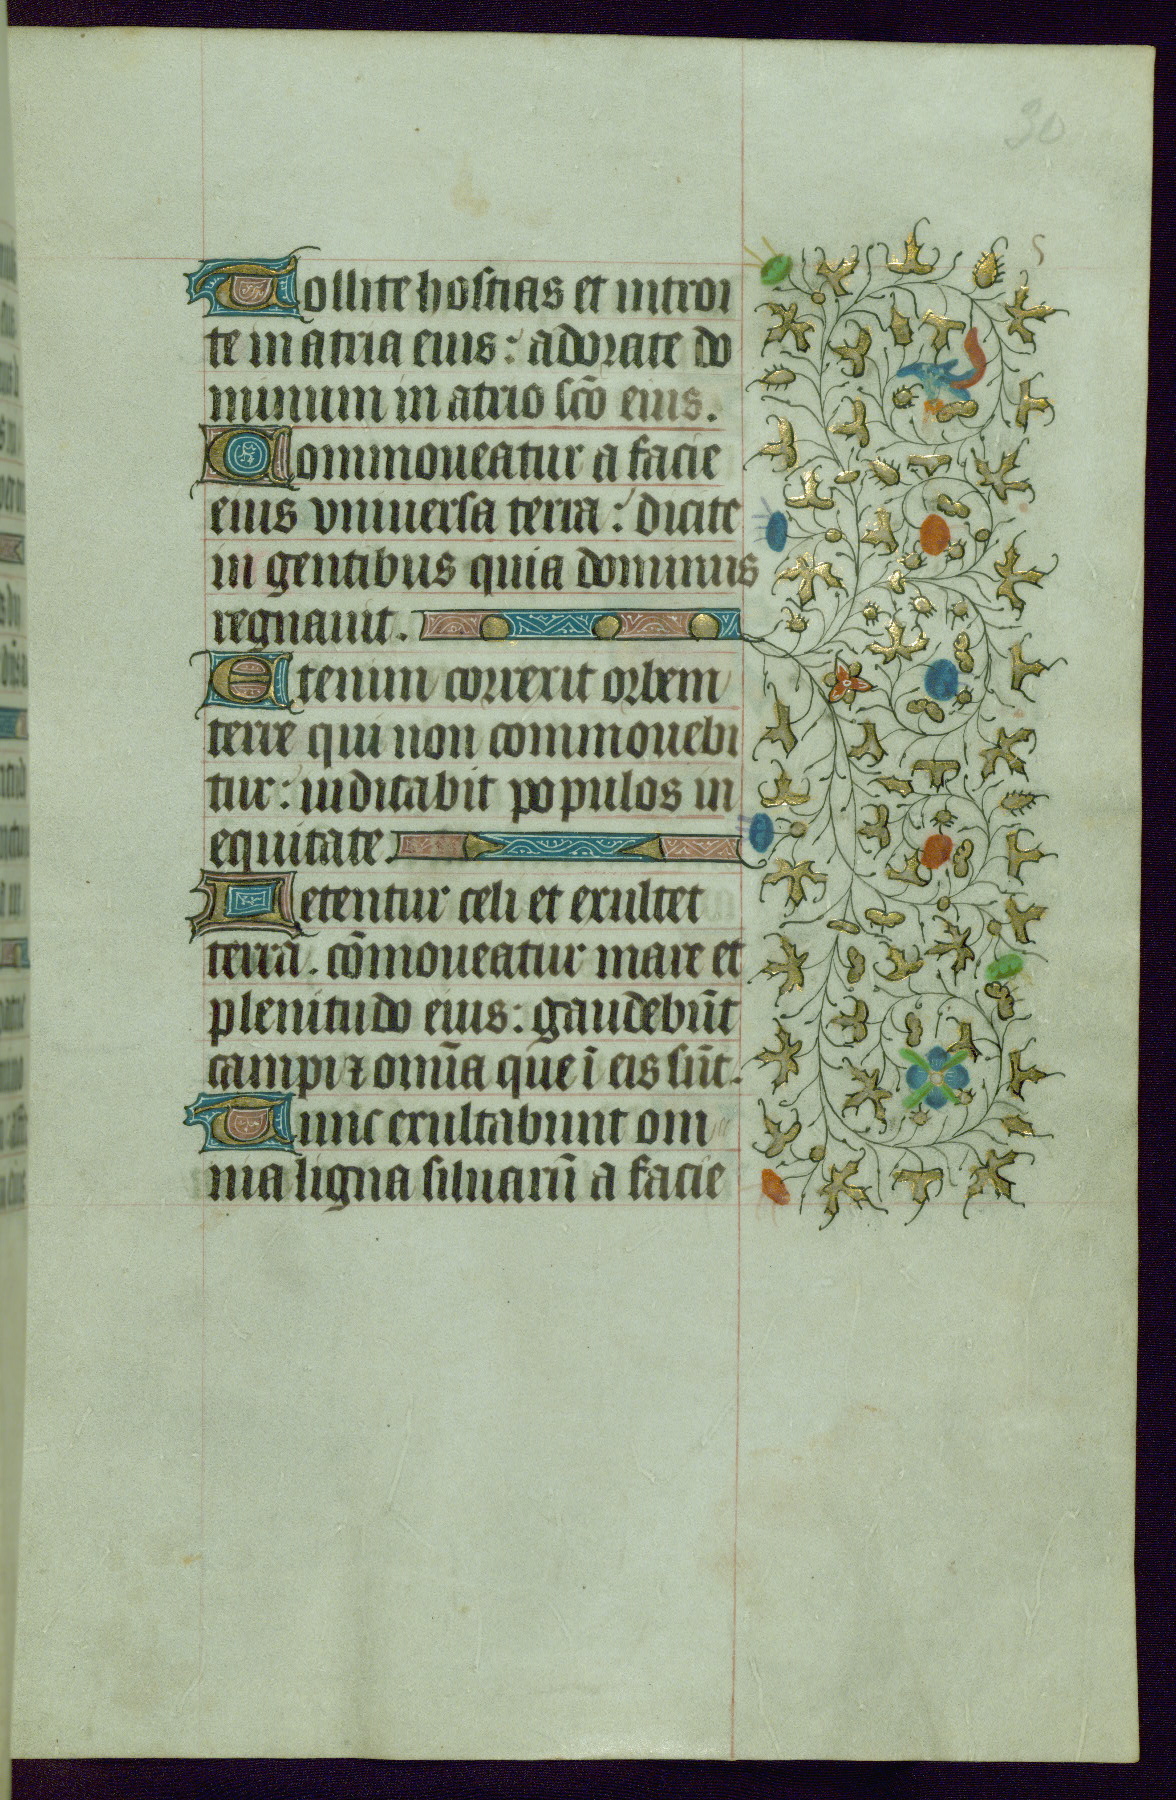 30
Tollite hostias et introi
te in atria eius: adorate do
minum in atrio scõ eius.
Commoueatur a facie
eius vniuersa terra: dicite
in gentibus quia dominus
regnauit.
Etenim correxit orbem
terre qui non commouebi
tur: iudicabit populos in
equitate.
Letentur celi et exultet
terra. cõmoueatur mare et
plenitudo eius: gaudebũt
campi ⁊ omĩa que ĩ eis sũt.
Tunc exultabunt om
nia ligna siluarũ a facie